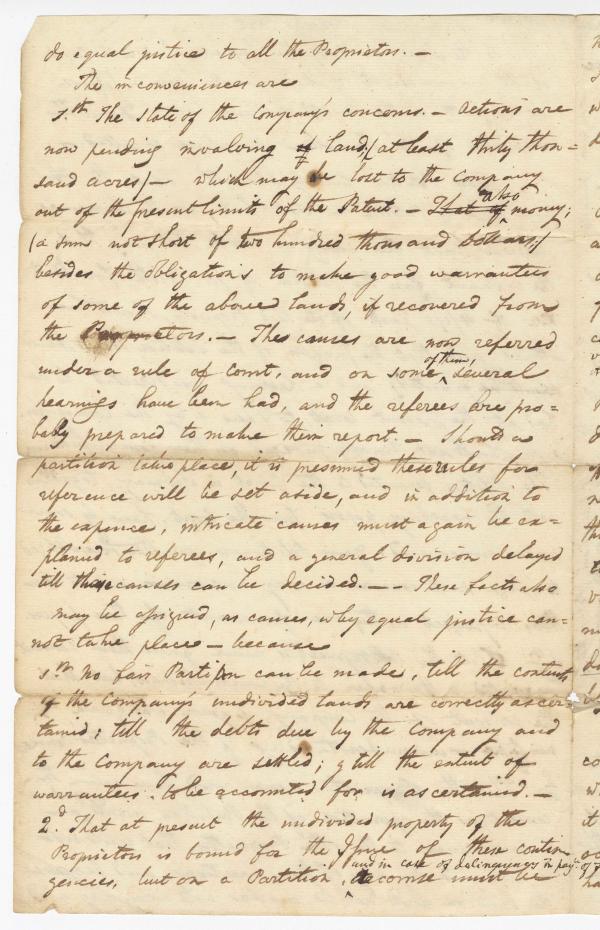 do equal justice to all the Proprietors. —
The inconveniences are
1.st The State of the Company's concerns. — Actions are
now pending involving of land, (at least thirty thou=
sand acres) — which may be lost to the Company
out of the present limits of the Patent. — That of also money;
(a sum not short of two hundred thousand Dollars;)
besides the obligations to make good warrantees
of some of the above lands, if recovered from
the Proprietors. — Thes causes are now referred
under a rule of court, and on some of them, several
hearings have been had, and the referees are pro=
bably prepared to make their report. — Should a
partition take place, it is presumed these rules for
reference will be set aside, and in addition to
the expence, intricate causes must again be ex=
plained to referees, and a general division delayed
till these causes can be decided. — — These facts also
may be assigned, as causes, why equal justice can=
not take place — because
1.st No fair Partition can be made, till the contents
of the Company's undivided lands are correctly ascer=
tained; till the debts due by the Company and
to the Company are settled; & till the extent of
warrantees to be accounted for is ascertained. —
2.d That at present the undivided property of the
Proprietors is bound for the Issue of these contin
gencies, but on a Partition, and in case of delinquency in payt. of recourse must be